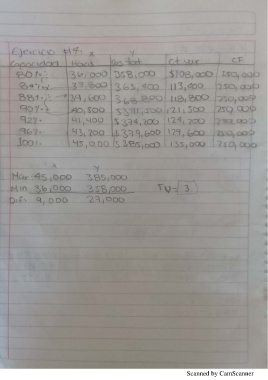 Ejercicio #19:
x y
Capacidad Hours Gs tot Ct var CF
80% 36,000 358,000 $108,000 250,000
84% 37,800 363,400 113,400 250,000
88% 39,600 368,800 118,800 250,000
90% 40,500 $371,500 121,500 250,000
92% 41,400 $374,200 124,200 250,000
96% 43,200 $379,600 129,600 250,000
100% 45,000 $385,000 135,000 250,000
x y
Max 45,000 385,000
Min 36,000 358,000 TV= 3
Dif: 9,000 27,000
Scanned by CamScanner